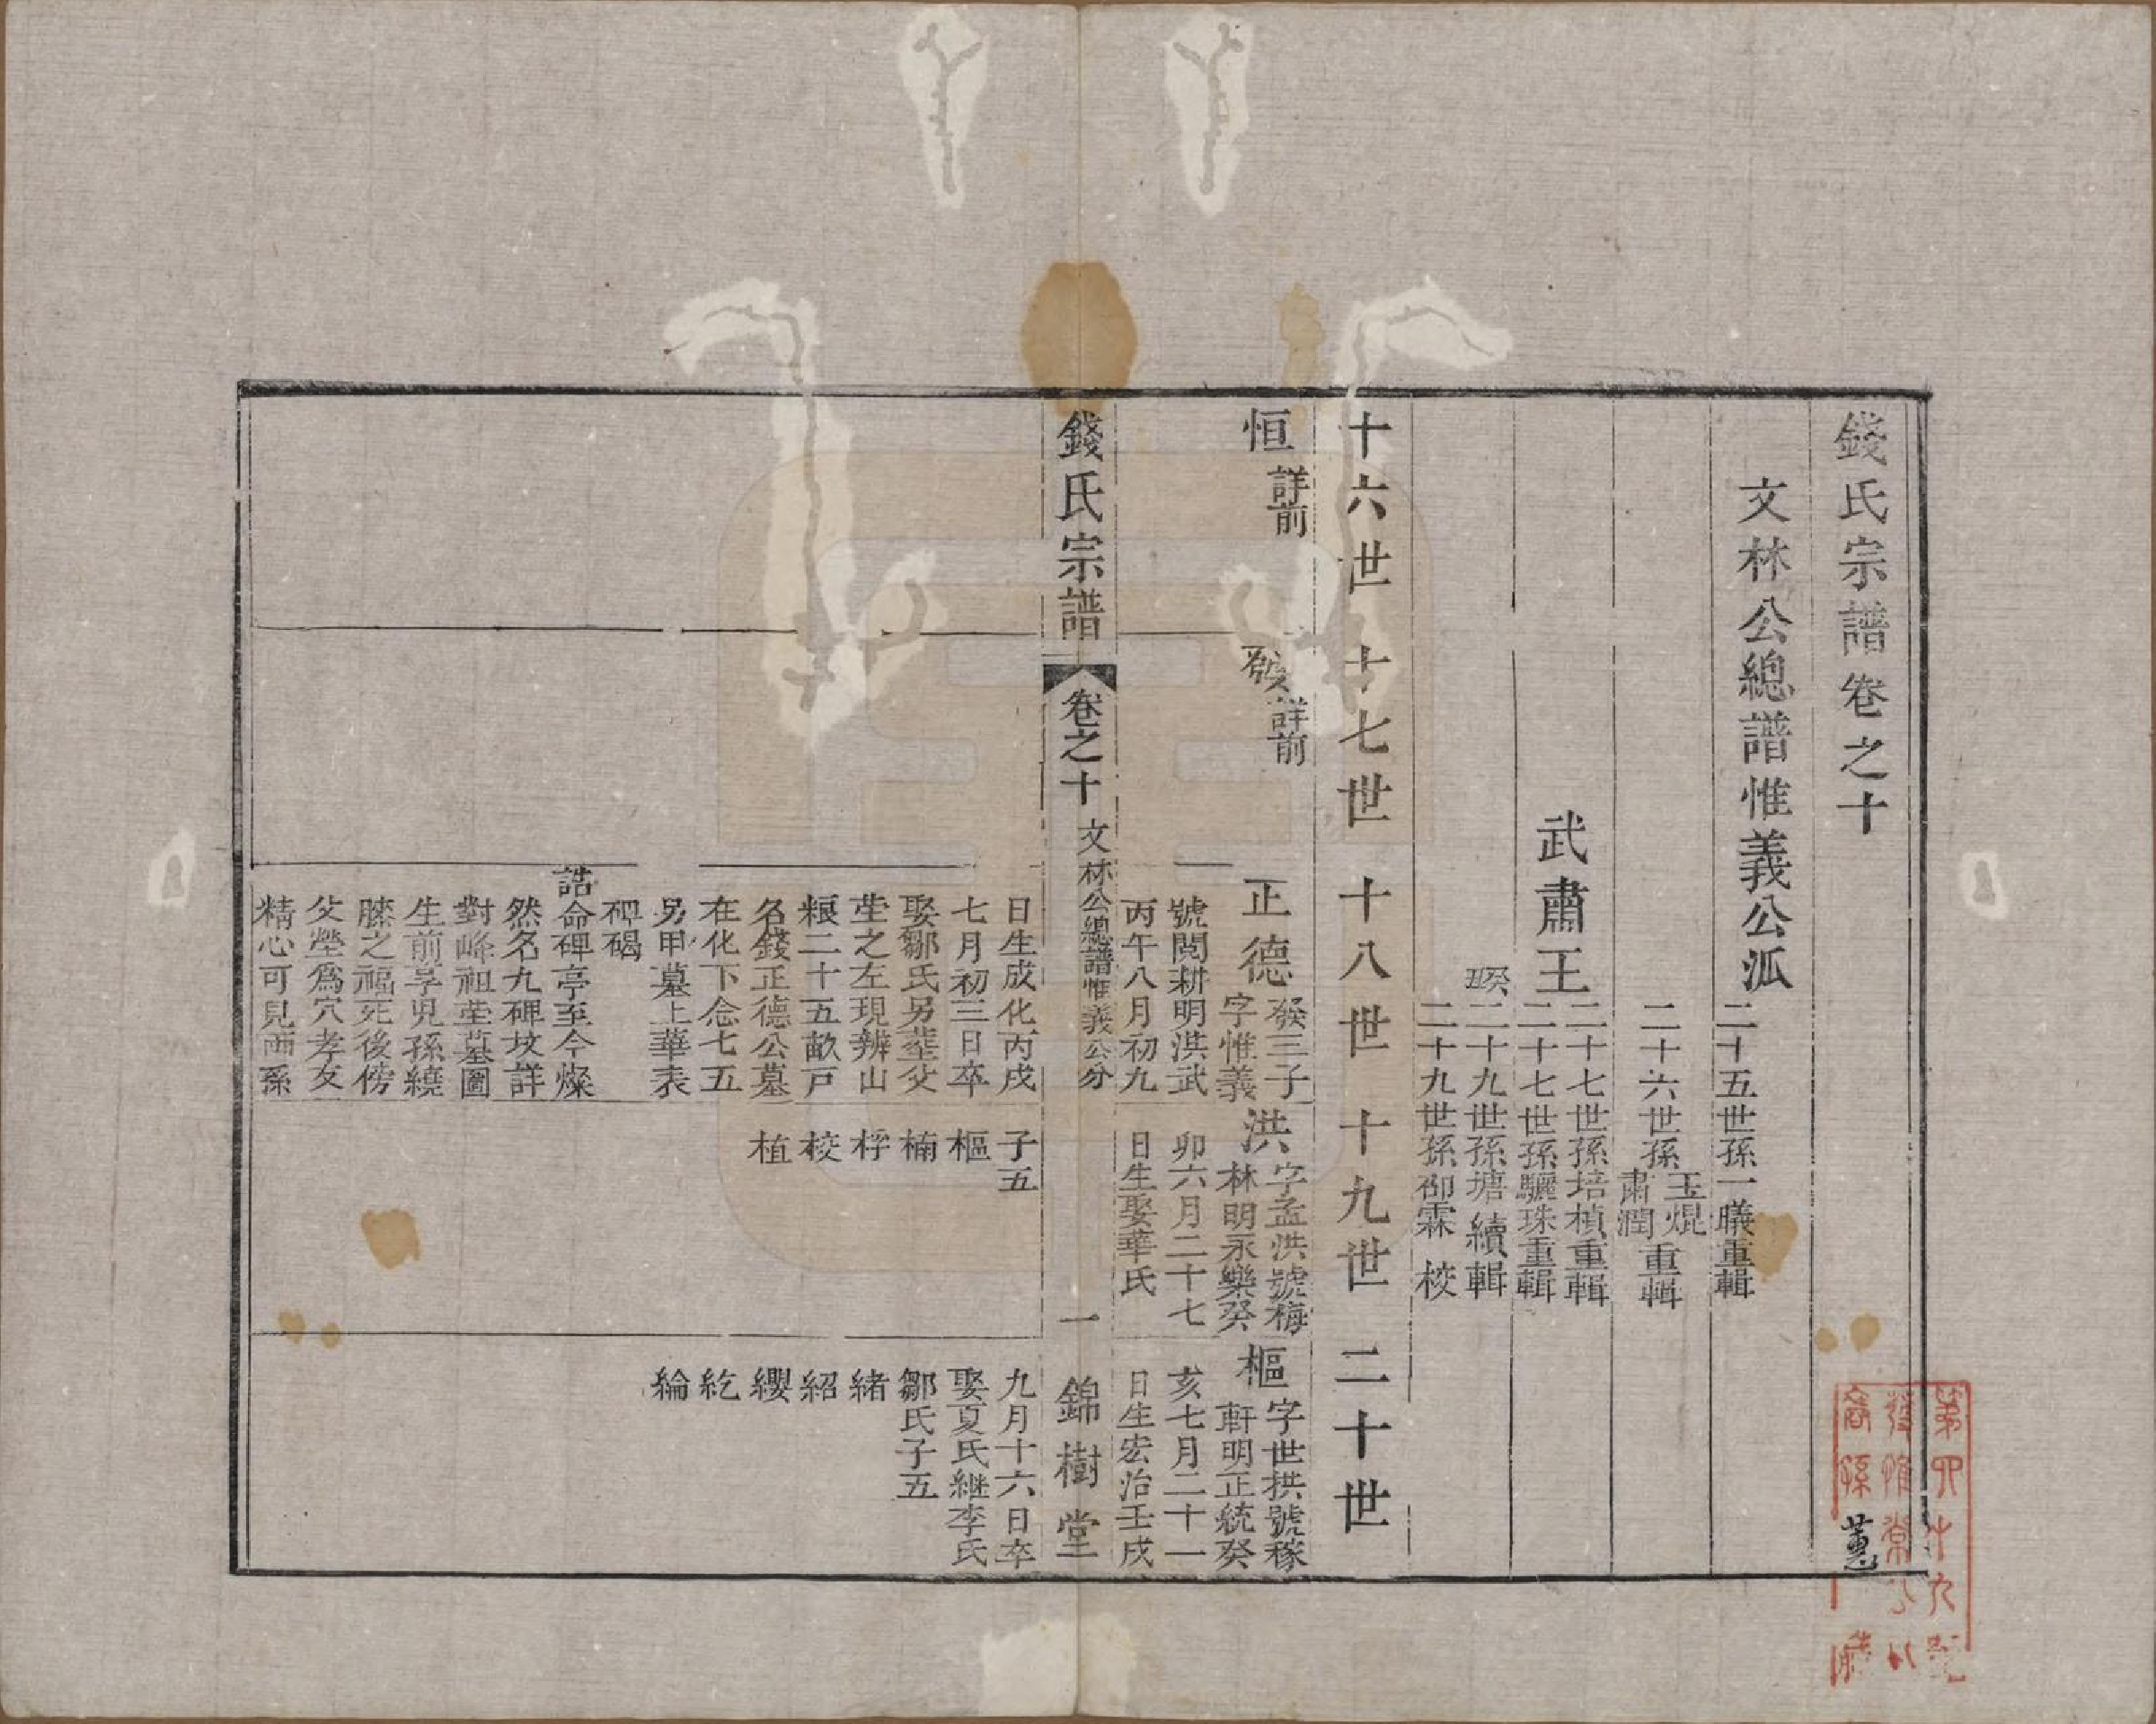 錢氏宗譜卷之十
文林公總譜惟義公派
二十五世孫一㬢重輯
二十六世孫玉焜肅潤重輯
武肅王
二十七世孫培楨重輯
二十七世孫驪珠重輯
二十九世孫塘續輯
二十九世孫御霖校
十六世 十七世 十八世 十九世 二十世
恒 詳前
發 詳前
正德 發三子
字惟義
號閱耕明洪武
丙午八月初九
日生成化丙戌
七月初三日卒
娶鄒氏另塟父
塋之左現辨山
粮二十五畝戶
名錢正德公墓
在化下念七五
另甲墓上華表
碑碣
誥命碑亭至今燦
然名九碑坟詳
對峰祖塋墓圖
生前享兒孫繞
膝之福死後傍
父塋爲穴孝友
精心可見而孫
洪 字孟洪號梅
林明永樂癸
卯六月二十七
日生娶華氏
子五
樞
楠
桴
校
植
樞 字世拱號稼
軒明正統癸
亥七月二十一
日生宏治壬戌
九月十六日卒
娶夏氏繼李氏
鄒氏子五
緒
紹
纓
紇
綸
錢氏宗譜 卷之十 文林公總譜惟義公分 一 錦樹堂
第四十九號
發惟常公
裔孫
蕙